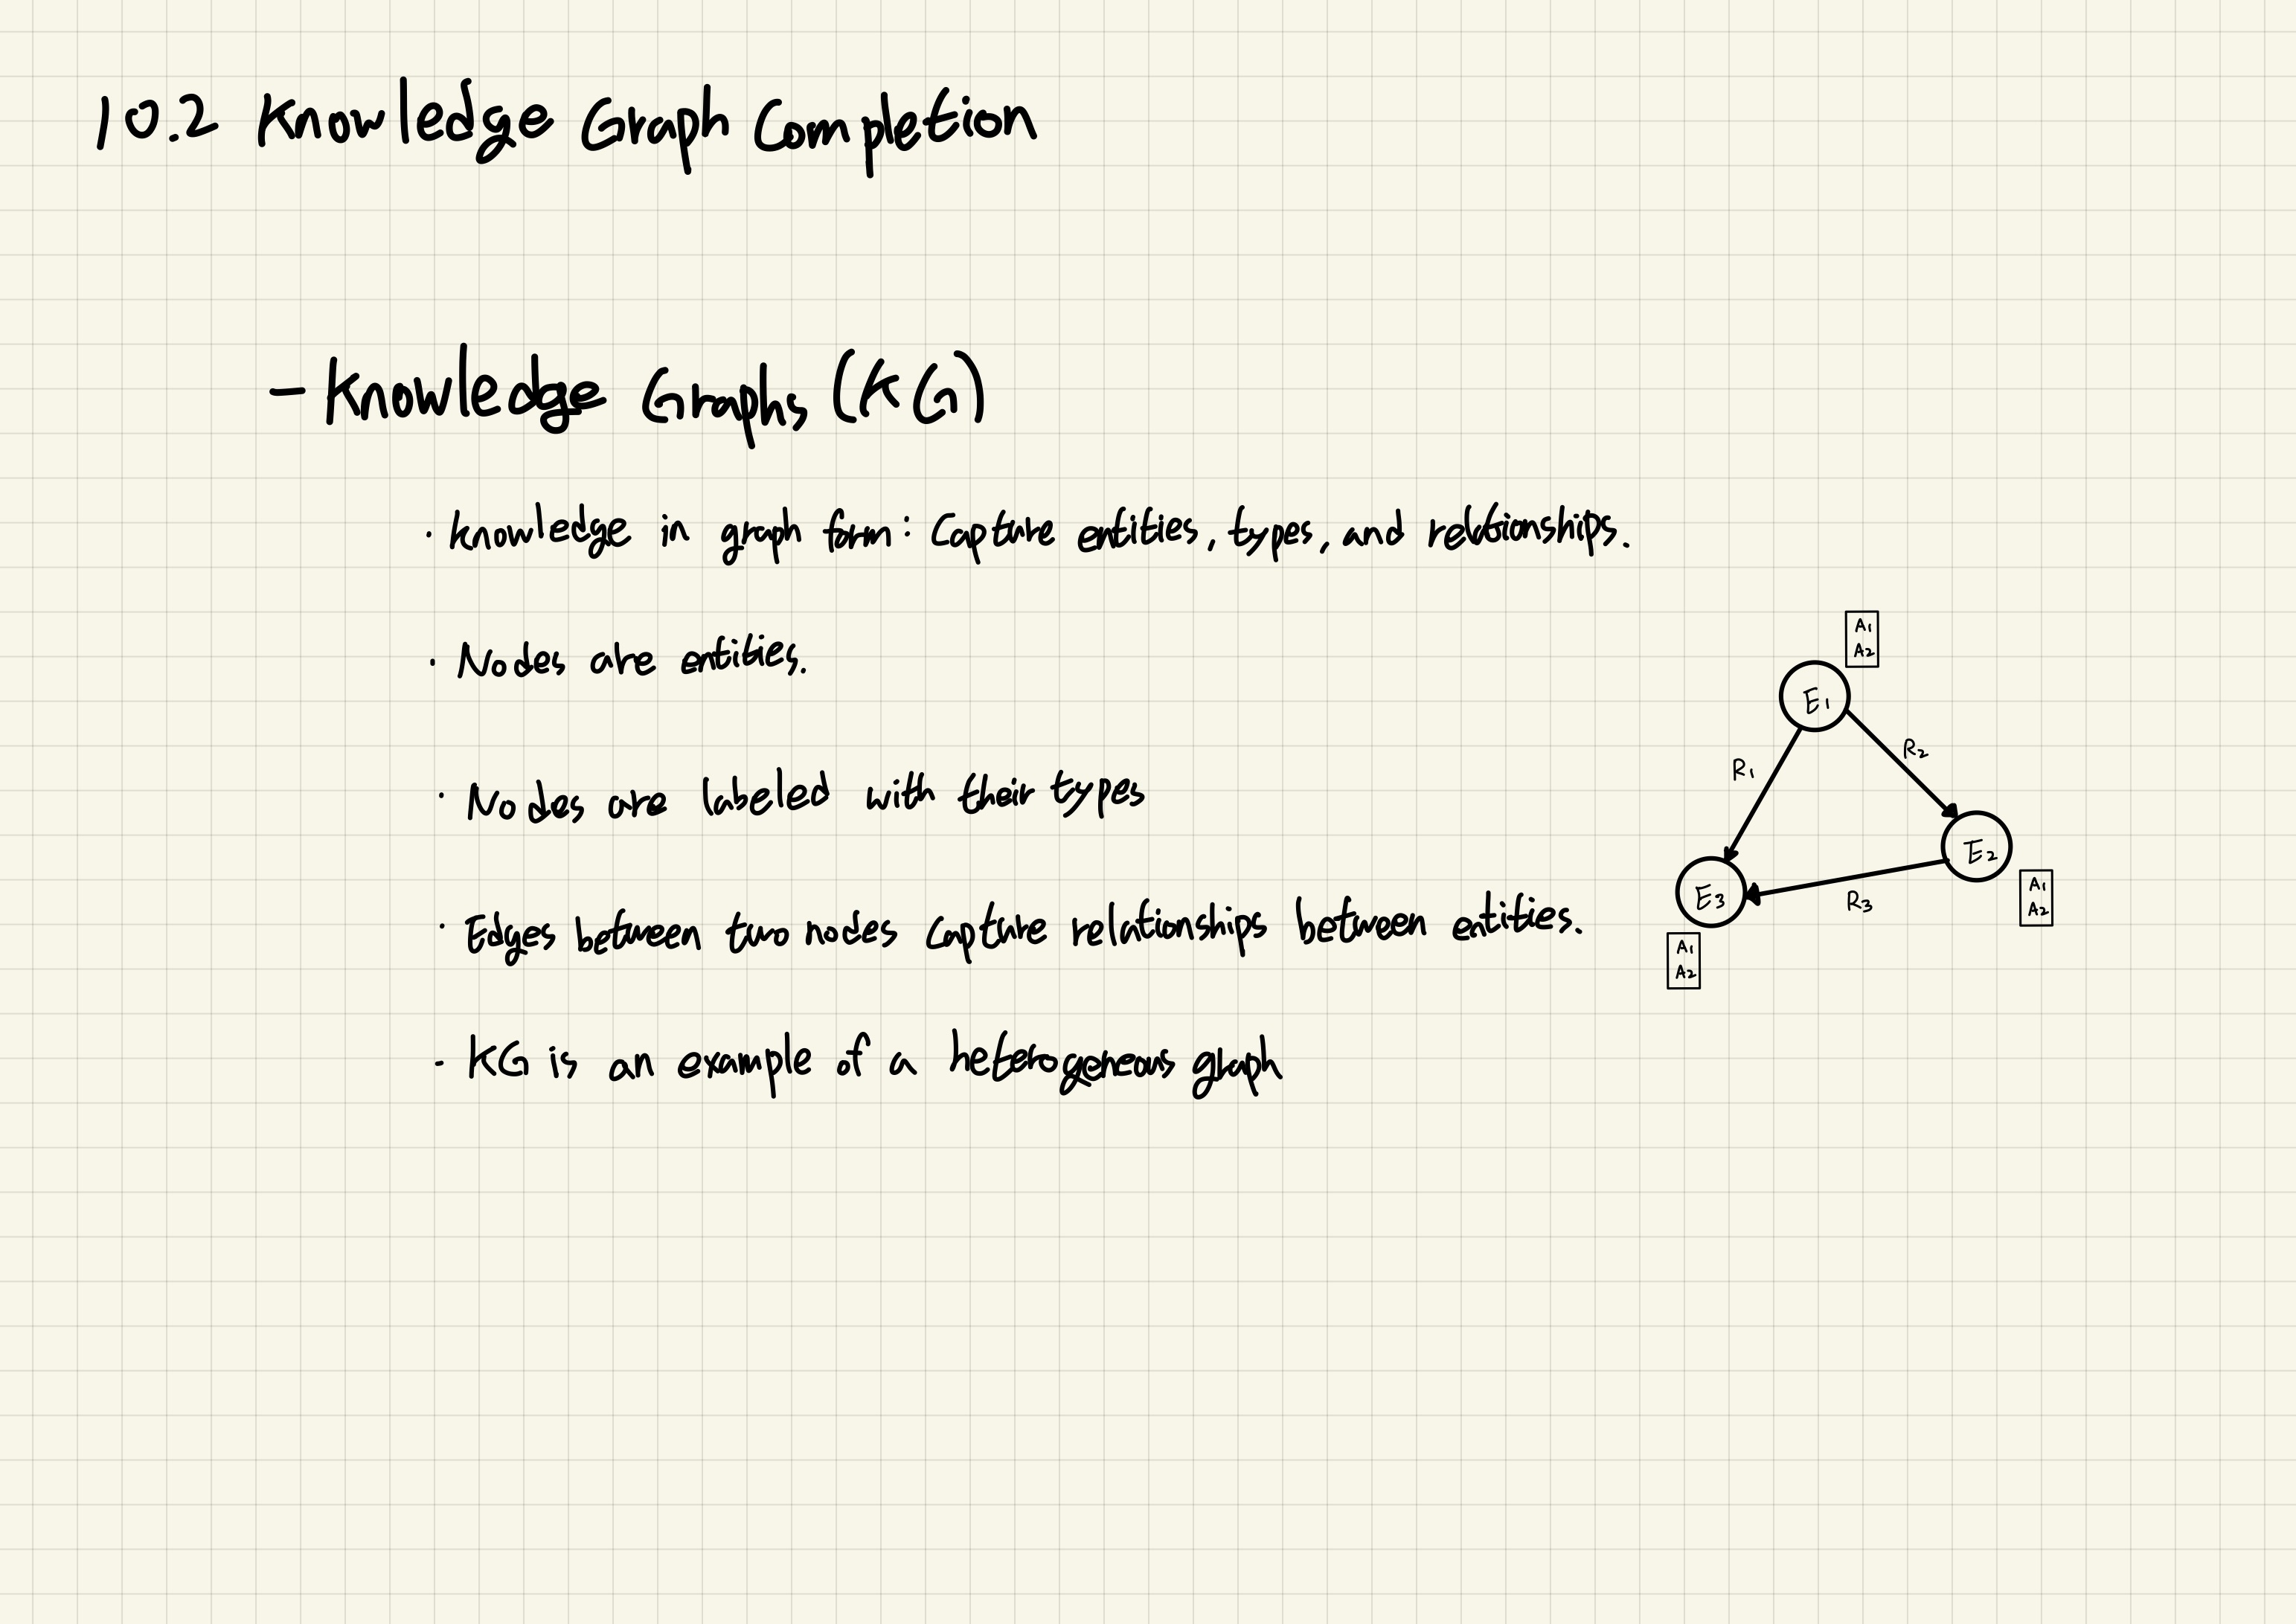 10.2 Knowledge Graph Completion
- Knowledge Graphs (KG)
· knowledge in graph form: Capture entities, types, and relationships.
· Nodes are entities.
· Nodes are labeled with their types
· Edges between two nodes capture relationships between entities.
· KG is an example of a heterogeneous graph
A1
A2
E1
R1
R2
E2
E3
R3
A1
A2
A1
A2